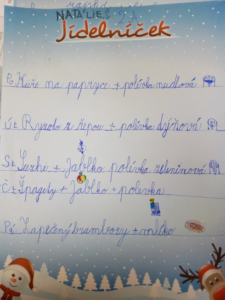 NATÁLIE
Jídelníček
Po Kuře na papryce + polívka nudlová
Út Ryzoto z řepou + polívka dýňová
St Sushi + Jablko polívka zeleninová
Č + Špagety + Jablko + polívka
Pá Zapečený brambory + mlíko